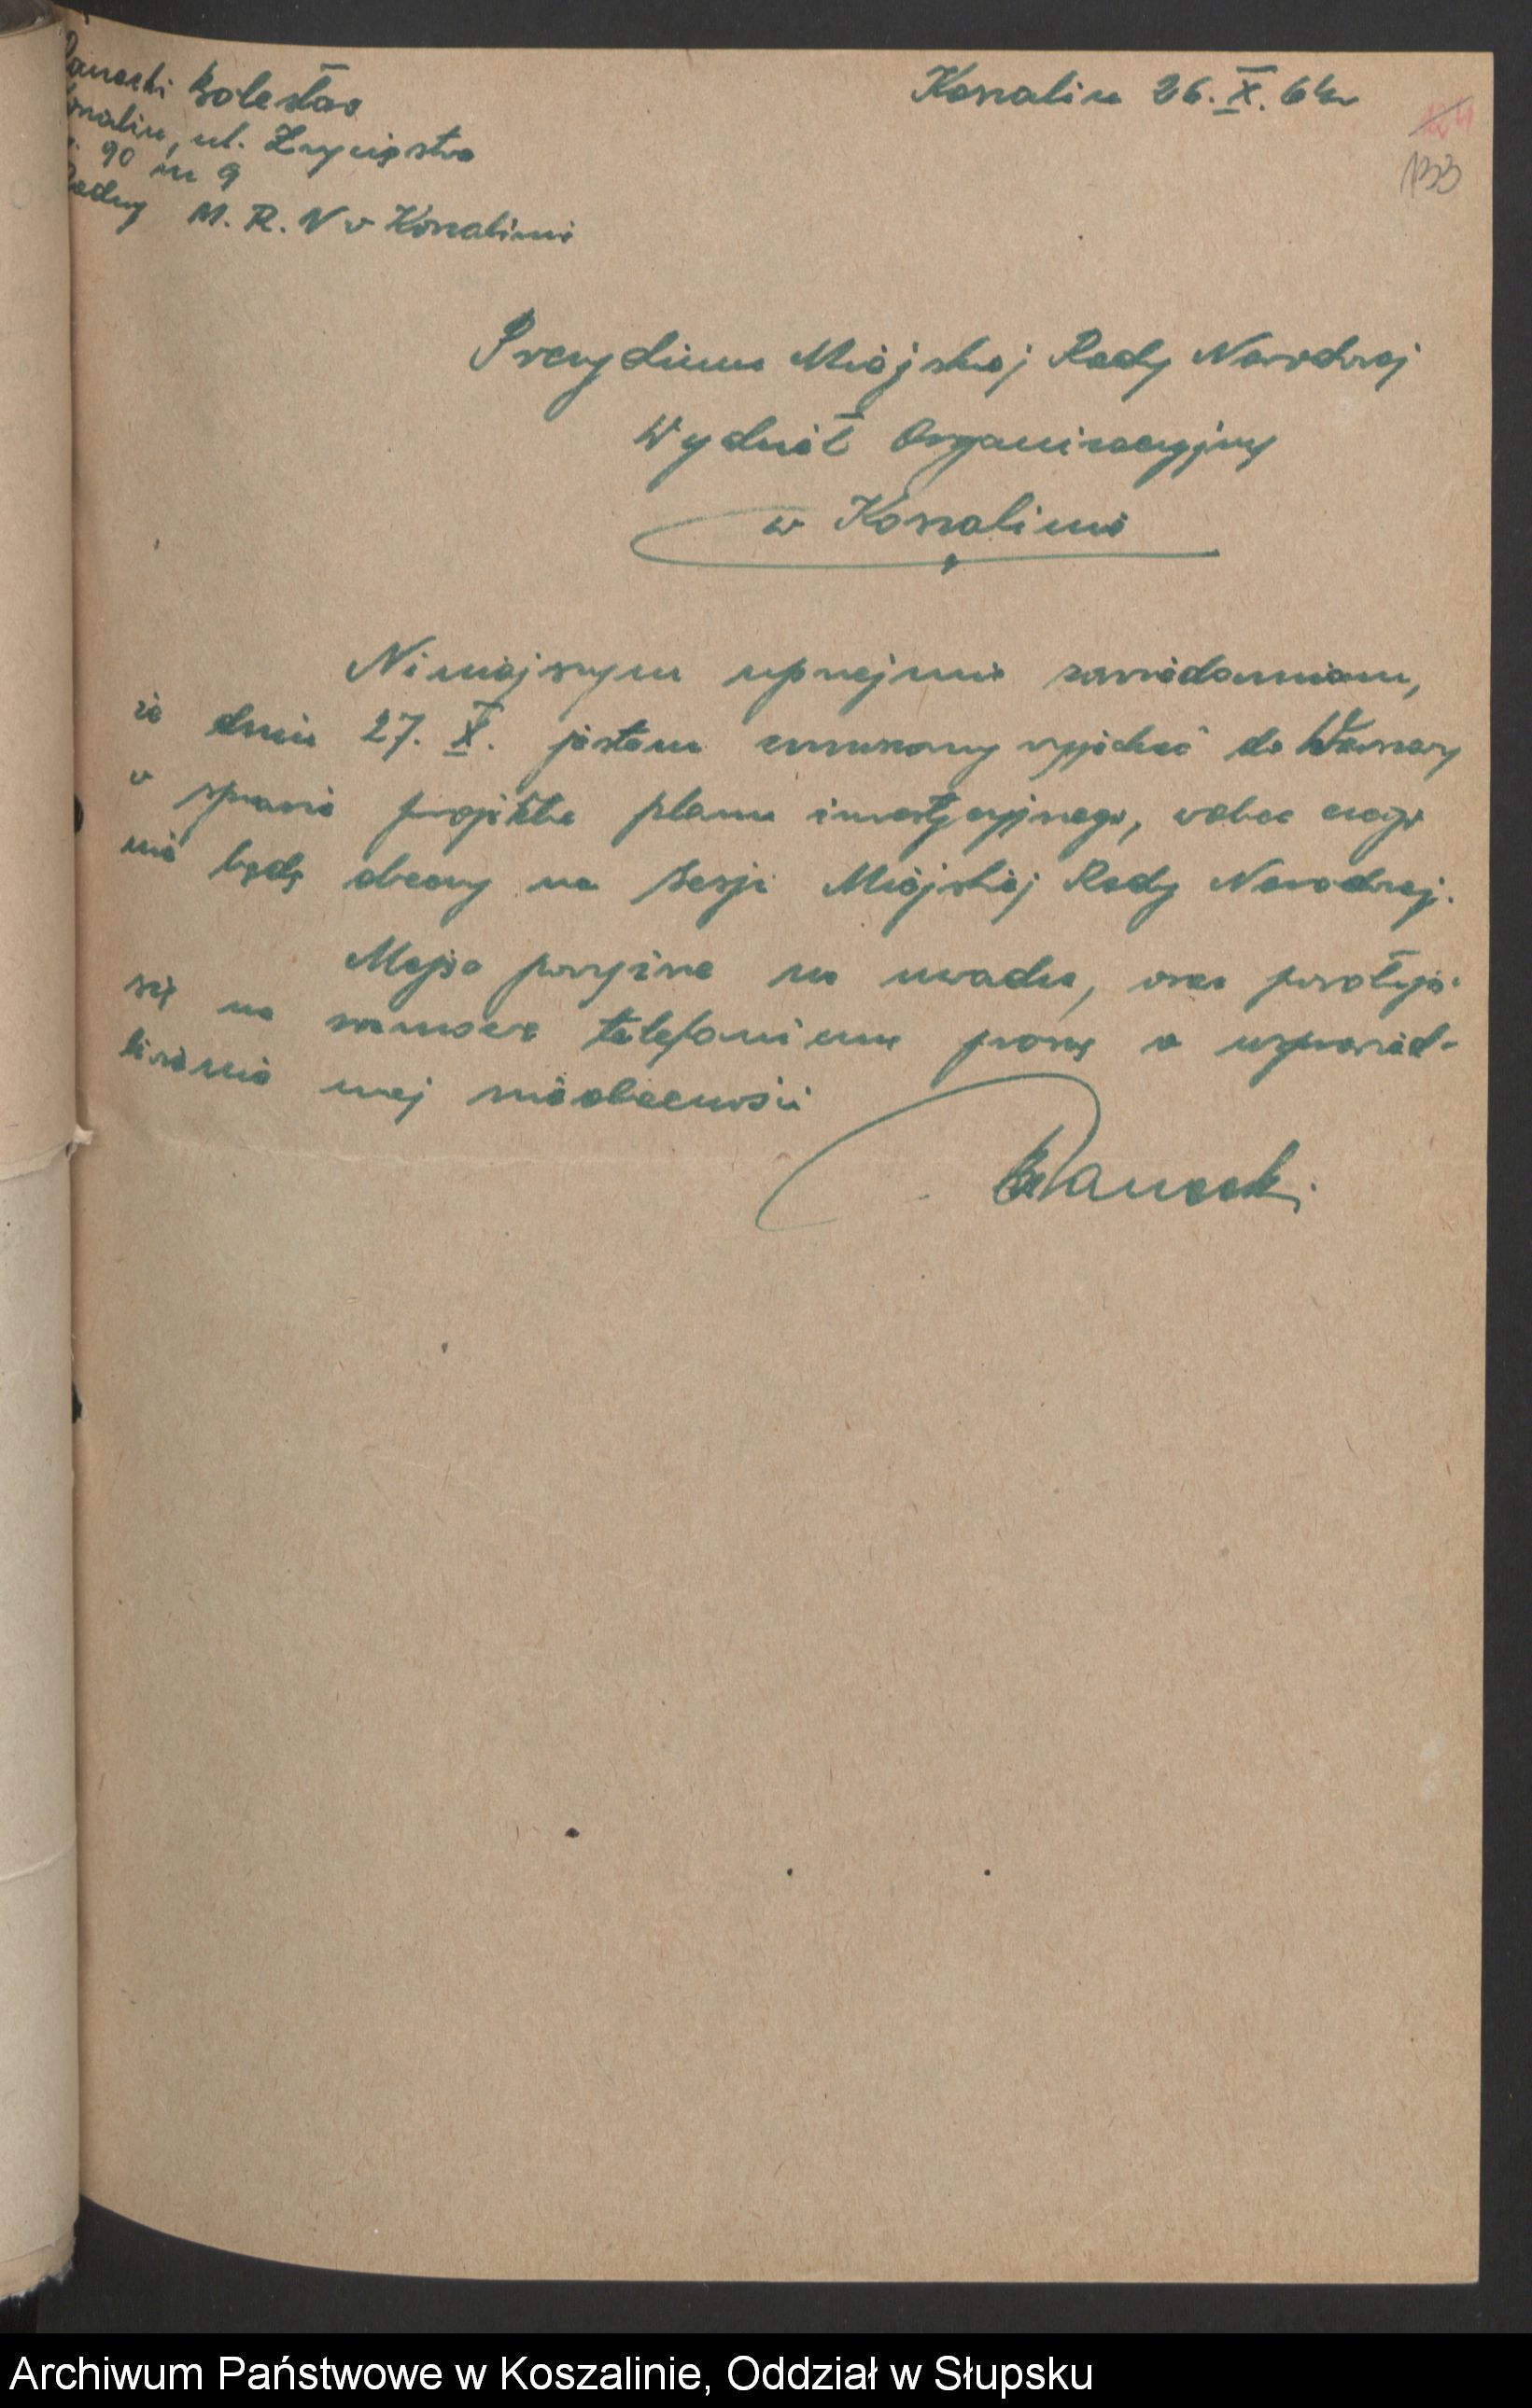 Bolesław
Koszalin, ul. Zwycięstwa
90 m 9
Radny M. R. N w Koszalinie
Koszalin 26. X. 64r
124
133
Prezydium Miejskiej Rady Narodowej
Wydział Organizacyjny
w Koszalinie
Niniejszym uprzejmie zawiadamiam,
że dniu 27. X. jestem zmuszony wyjechać do Warszawy
w sprawie projektu planu inwestycyjnego, wobec czego
nie będę obecny na Sesji Miejskiej Rady Narodowej.
Mając powyższe na uwadze, oraz powołując
się na rozmowę telefoniczną proszę o usprawied-
liwienie mej nieobecności
Archiwum Państwowe w Koszalinie, Oddział w Słupsku